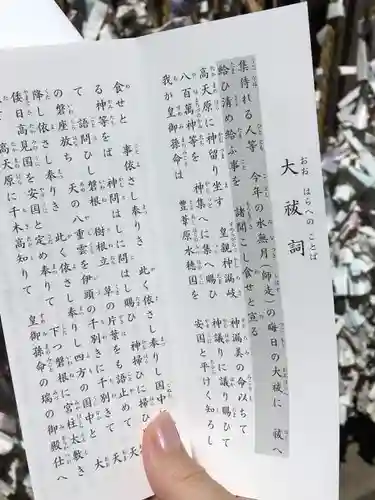 大祓詞
おおはらへのことば
集侍れる人等 今年の水無月(師走)の晦日の大祓に 祓へ
給ひ清め給ふ事を 諸聞こし食せと宣る
高天原に神留り坐す 皇親神漏岐 神漏美の命以ちて
八百萬神等を 神集へに集へ賜ひ 神議りに議り賜ひて
我が皇御孫命は 豊葦原水穂国を 安国と平けく知ろし
食せと 事依さし奉りき 此く依さし奉りし国中に
る神等をば 神問はしに問はし賜ひ 神掃ひに掃ひ
て 語問ひし磐根 樹根立 草の片葉をも語止めて 天
の磐座放ち 天の八重雲を伊頭の千別きに千別きて 天
降し依さし奉りき 此く依さし奉りし四方の国中と 大
倭日高見国を安国と定め奉りて 下つ磐根に宮柱太敷き
て 高天原に千木高知りて 皇御孫命の瑞の御殿仕へ